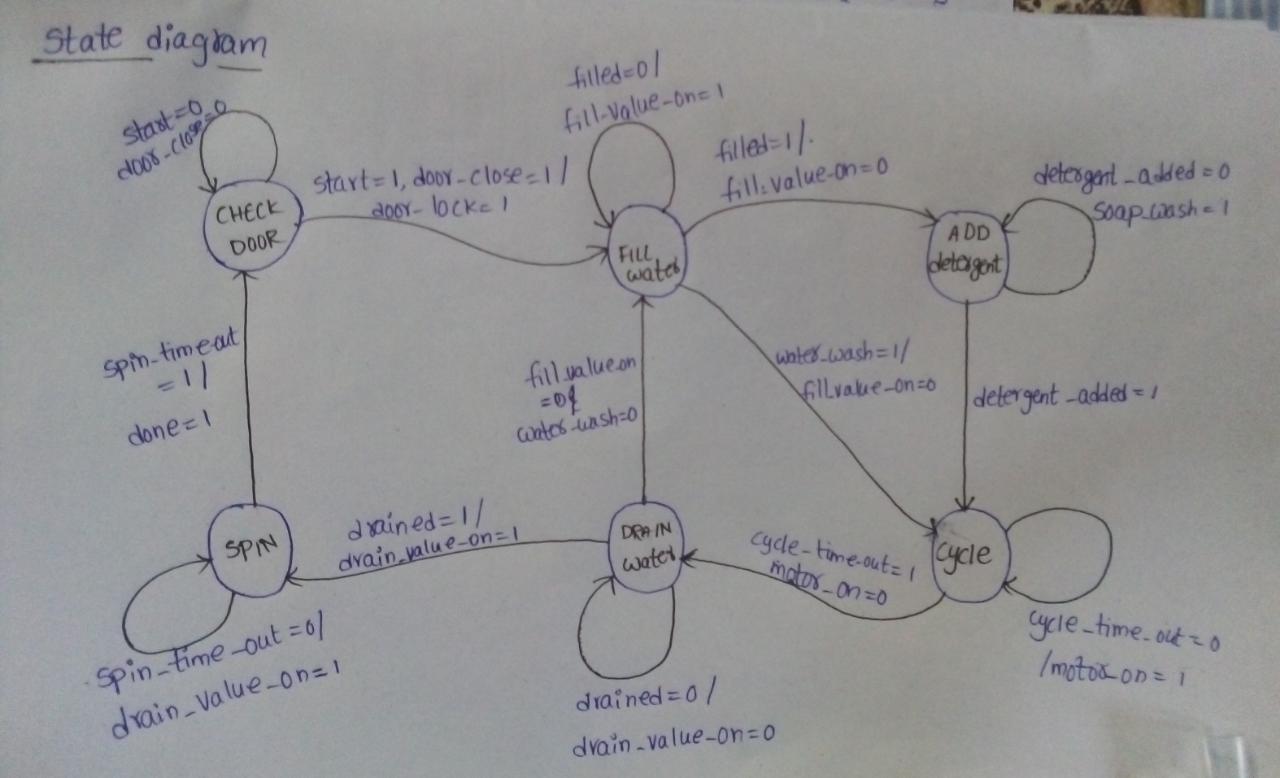 State diagram
start=0
door-close=0
CHECK
DOOR
start=1, door-close=1/
door-lock=1
filled=0/
fill-value-on=1
FILL
water
filled=1/.
fill-value-on=0
ADD
detergent
detergent_added=0
soap_wash=1
spin-timeout
=1/
done=1
fill_value_on
=0&
water-wash=0
water_wash=1/
fill_value-on=0
detergent_added=1
SPIN
drained=1/
drain_value-on=1
DRAIN
water
cycle-time-out=1
motor_on=0
cycle
spin_time_out=0/
drain_value-on=1
drained=0/
drain_value-on=0
cycle_time_out=0
/motor_on=1